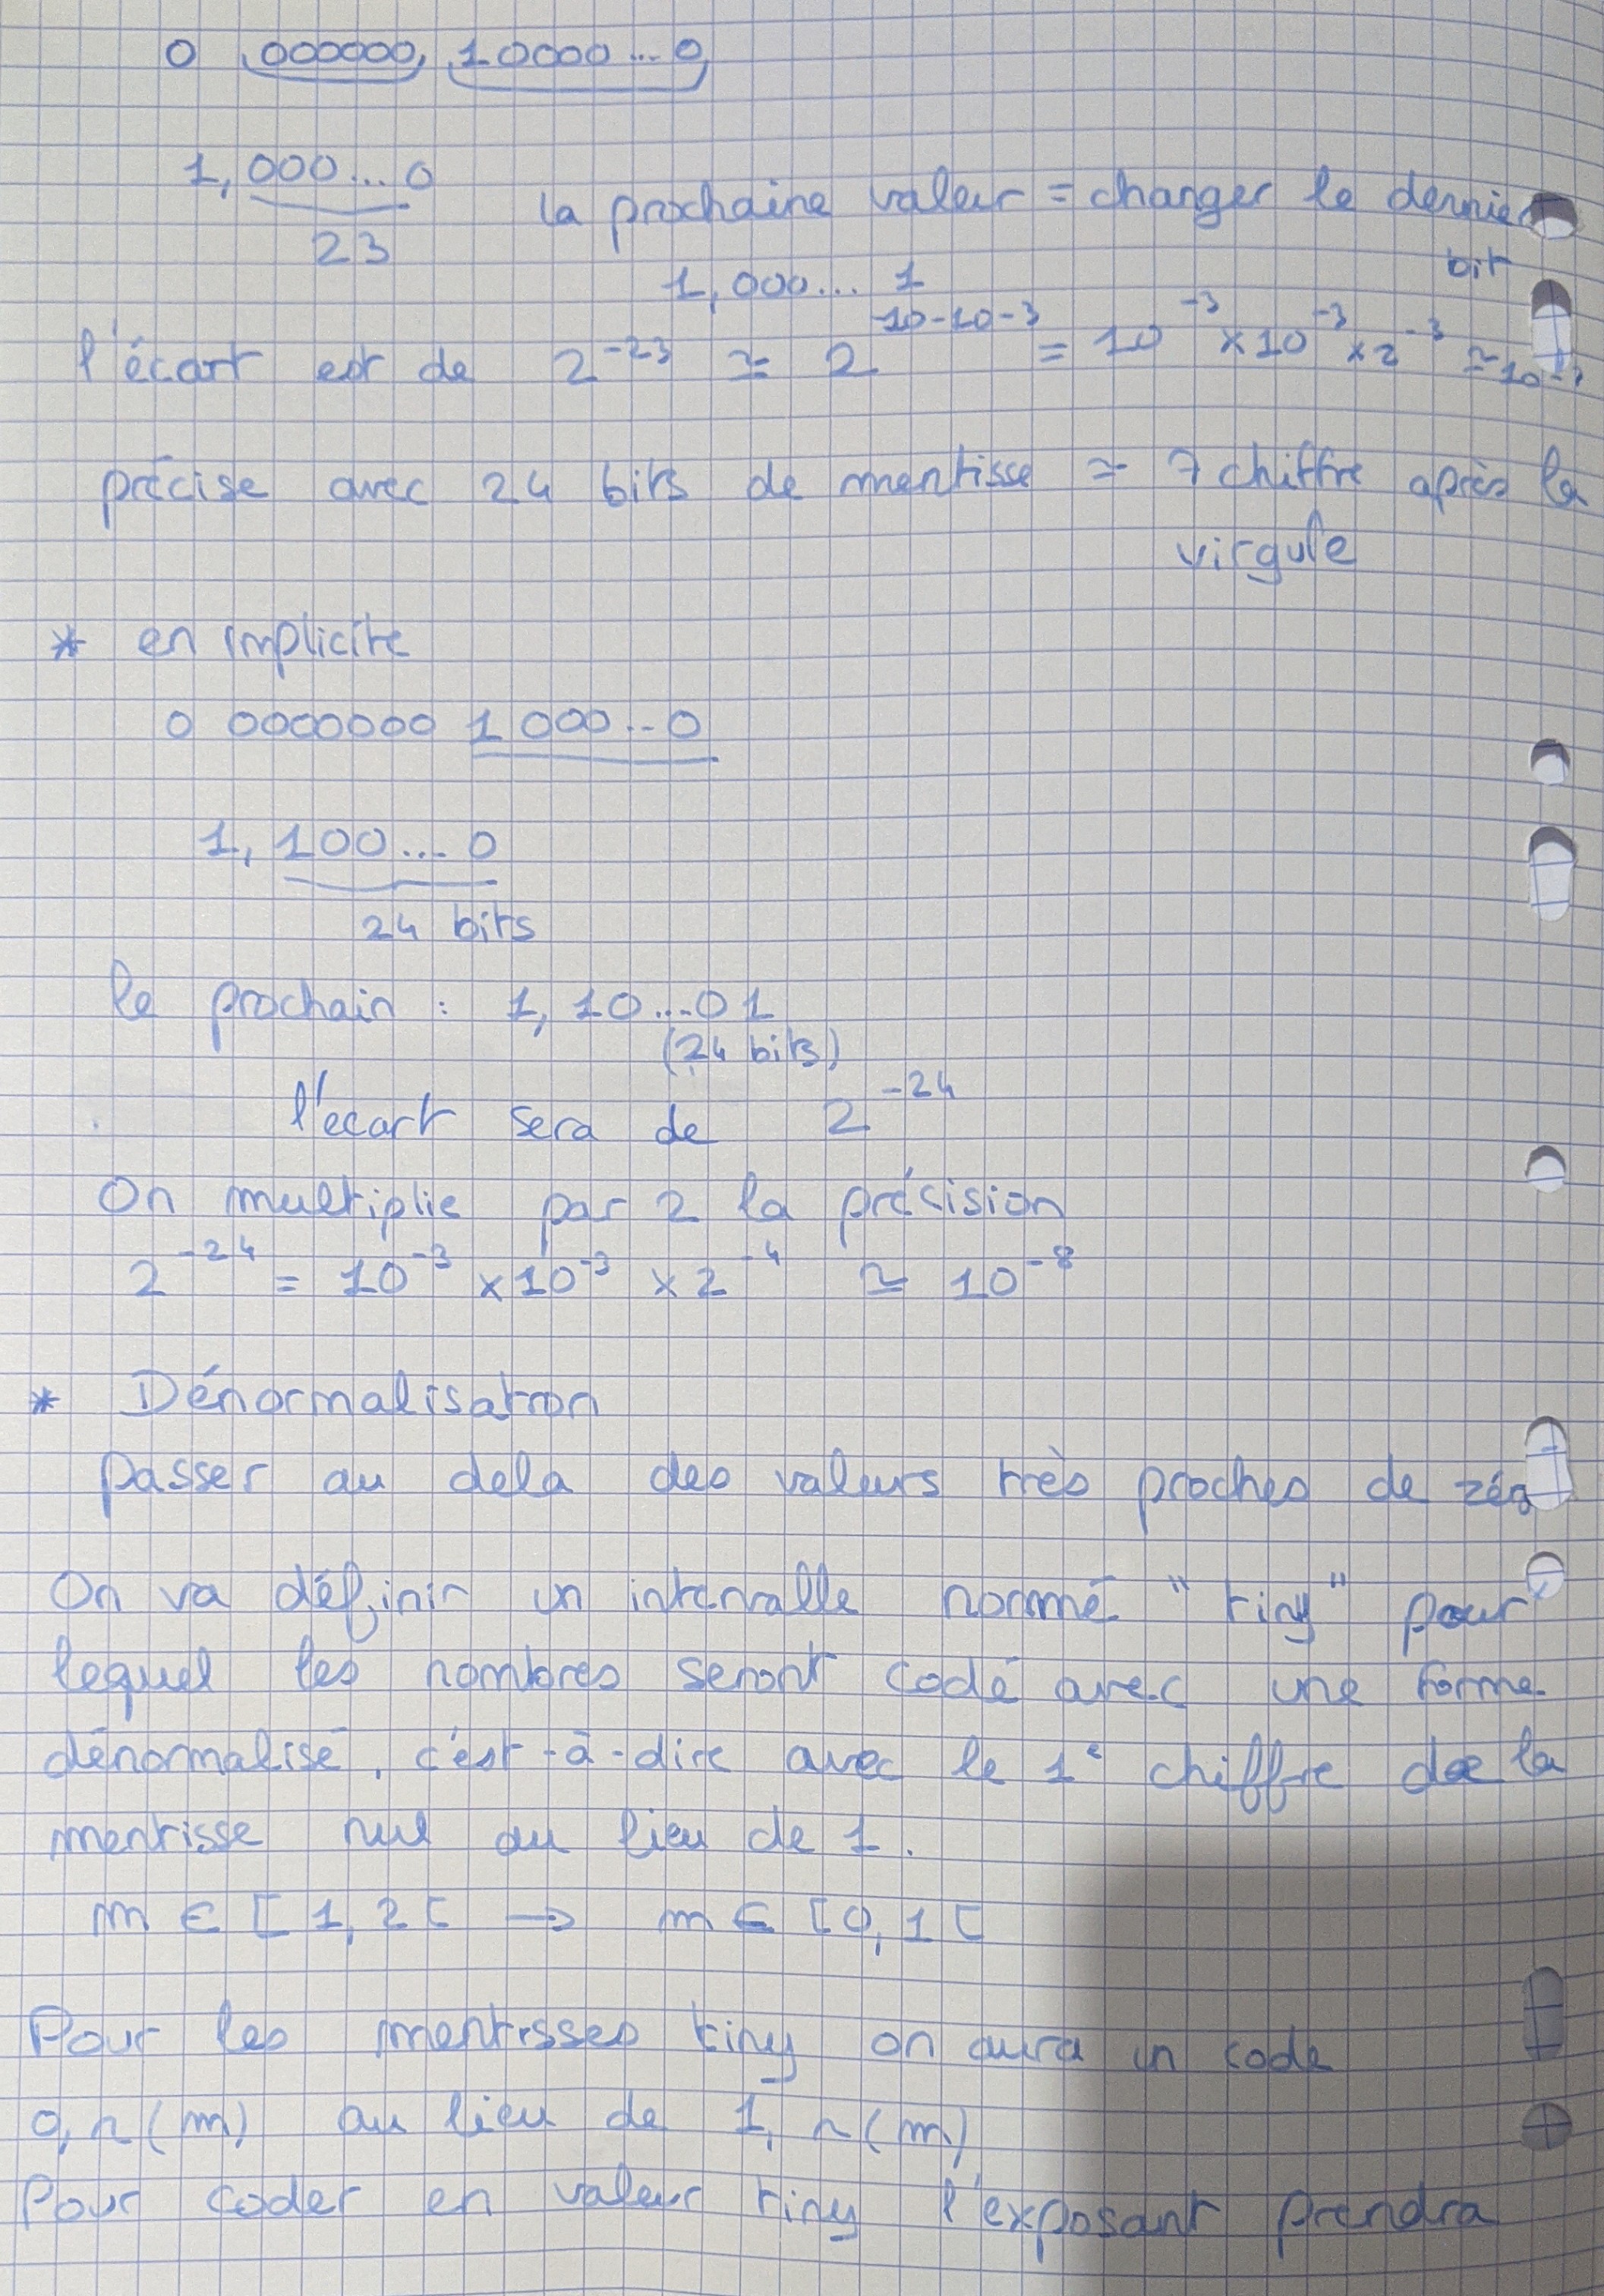 0 000000, 10000...0,
1,000...0
23
la prochaine valeur = changer le dernier
bit
1,000... 1
l'écart est de 2^-23 ≃ 2^-10-10-3 = 10^-3 × 10^-3 × 2^-3 ≃ 10^-7
précise avec 24 bits de mentisse ≃ 7 chiffre après la
virgule
* en implicite
0 0000000 1 000...0
1, 100...0
24 bits
le prochain : 1, 10...01
(24 bits)
l'ecart sera de 2^-24
On multiplie par 2 la précision
2^-24 = 10^-3 × 10^-3 × 2^-4 ≃ 10^-8
* Dénormalisation
Passer au dela des valeurs très proches de zéro
On va définir un intervalle normé "tiny" pour
lequel les nombres seront codé avec une forme
dénormalisé, c'est-à-dire avec le 1e chiffre de la
mentisse nul au lieu de 1.
m ∈ [1,2[ → m ∈ [0,1[
Pour les mentisses tiny on aura un code
0, r(m) au lieu de 1, r(m)
Pour coder en valeur tiny l'exposant prendra